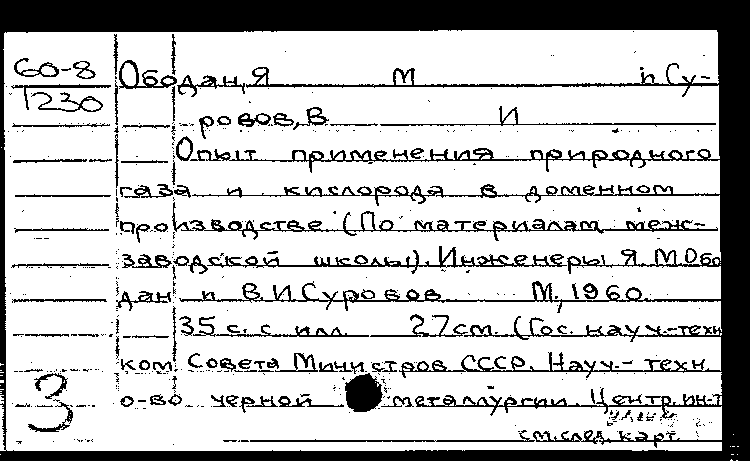 60-8
1230
Ободан, Я М и Су-
ровов, В И
Опыт применения природного
газа и кислорода в доменном
производстве (По материалам меж-
заводской школы). Инженеры Я. М. Обо
дан и В. И. Суровов М., 1960.
35 с. с илл. 27 см. (Гос. науч.-техн
ком Совета Министров СССР. Науч.- техн.
о-во черной металлургии. Центр. ин-т
3
см. след. карт.